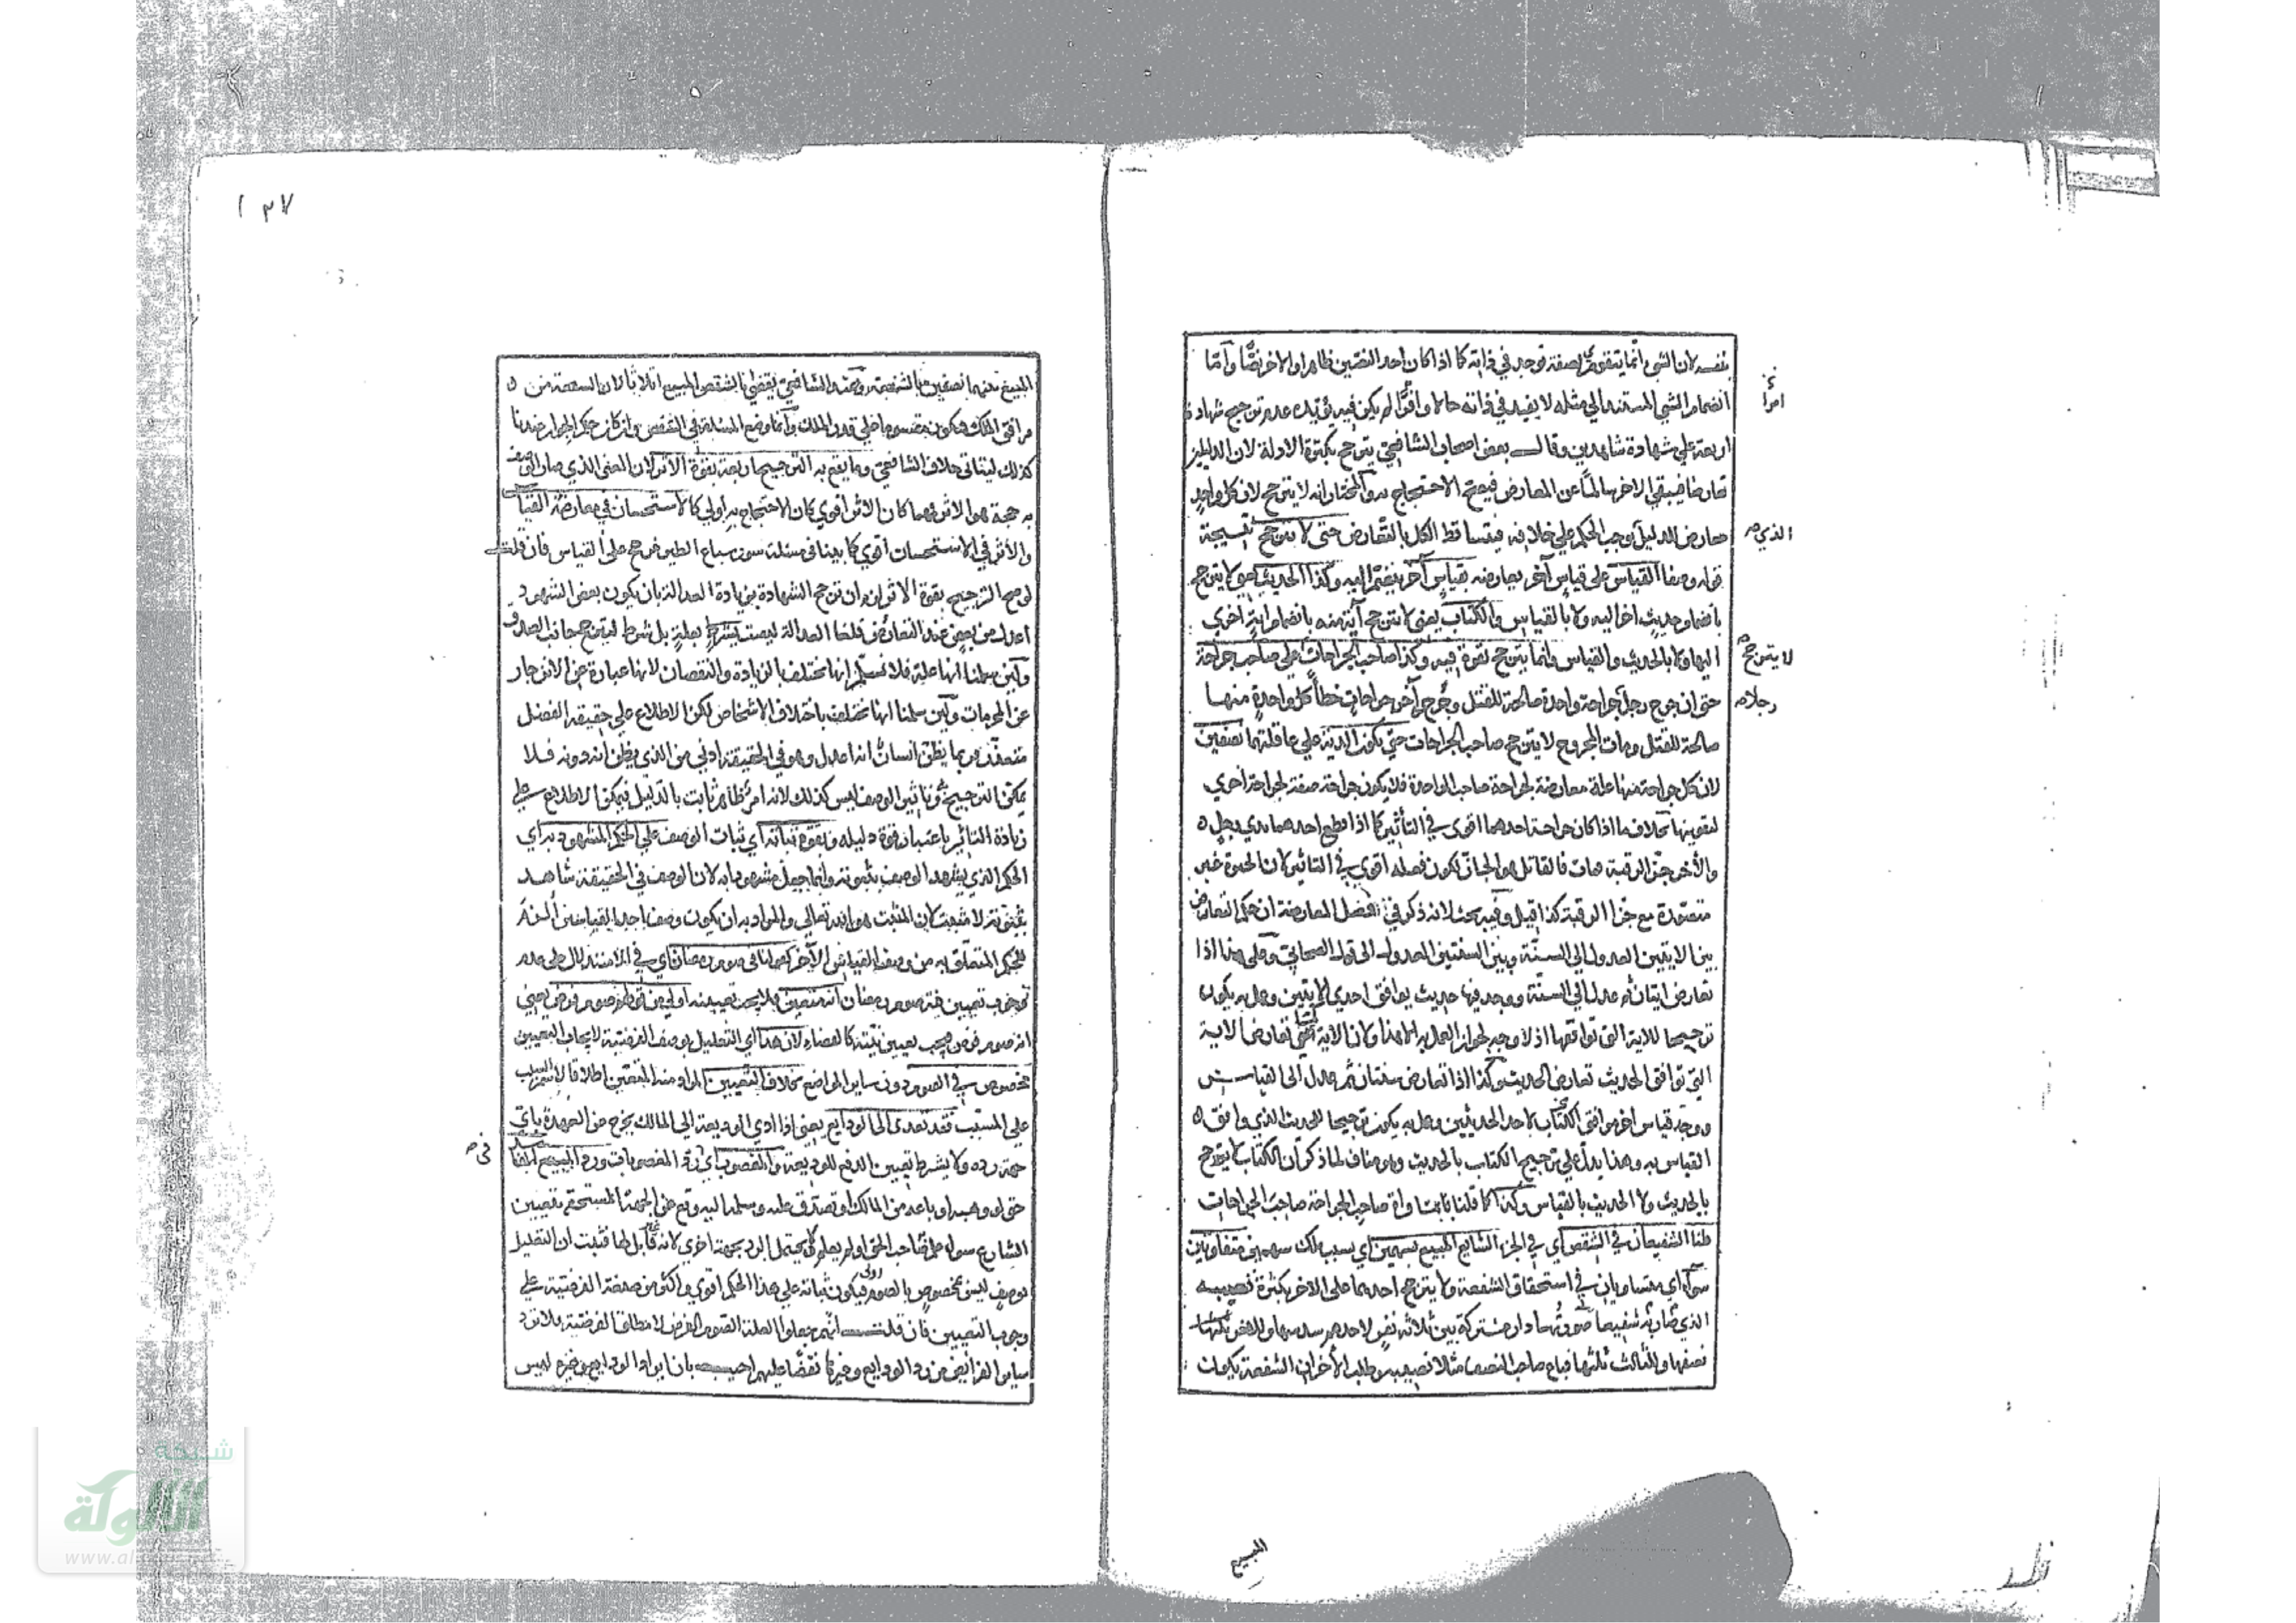 بنفسه لان الشيء انما يتقوى بصفة توجد في ذاته كما اذا كان احد النصين ظاهرا والاخر نصًّا وأمّا
انضمام الشي المستند الي مثله لا يفيد في ذاته حالا وقوّة لم يكن فيه يؤيده عدم ترجيح شهادة
اربعة علي شهادة شاهدين وقال بعض اصحاب الشافعي يترجح بكثرة الادلة لان الدليلين
تعارضا فيبقي الاخر سالمًا عن المعارض فيصح الاحتجاج به والمختار انه لا يترجح لان كل واحد
معارض للدليل يوجب الحكم علي خلافه فيتساقط الكل بالتعارض حتى لا يترجح
الذي صح
القياس على قياسٍ آخر يعارضه بقياسٍ آخر ينضم اليه وكذا الحديث لا يترجح
بانضمام حديث اخر اليه ولا بالقياس والكتاب يعني لا يترجح آية منه بانضمام اية اخري
اليها ولا بالحديث والقياس وانما يترجح بقوة فيه وكذا صاحب الجراحات علي صاحب جراحة
لا يترجح صح
حتى ان جرح رجل جراحة واحدة صالحة للقتل وجرح آخر جراحات خطأ كل واحدةٍ منها
رجلا صح
صالحة للقتل ومات المجروح لا يترجح صاحب الجراحات حتي يكون الدية علي عاقلتهما نصفين
لان كل جراحة منها علة معارضة لجراحة صاحب الواحدة فلا يكون جراحة صفة لجراحة أخري
لتقويتها بخلاف ما اذا كان جراحة احدهما اقوى في التأثير كما اذا قطع احدهما يدي رجل
والآخر جزّ الرقبة فمات فالقاتل هو الجازّ لكون فعله اقوي في التاثير لان الحيوة غير
متصورة مع جزّ الرقبة كذا قيل وفيه بحث لانه ذكر في فصل المعارضة ان حكم التعارض
بين الايتين العدول الي السنّة وبين السنتين العدول الى قول الصحابي وعلي هذا اذا
تعارض ايتان ثم عدل الي السنّة ووجد فيها حديث يوافق احدي الآيتين وعمل به يكون
ترجيحا للاية التي توافقها اذ لا وجه لجواز العمل به الا هذا ولان الاية التي تعارض الاية
التي توافق الحديث تعارض الحديث وكذا اذا تعارض سنتان ثم عدل الى القياس
ووجد قياس اخر موافق لاحد الحديثين وعمل به يكون ترجيحا للحديث الذي وافق
القياس به وهذا يدل علي ترجيح الكتاب بالحديث وهو مناف لما ذكر أن الكتاب لا يترجح
بالحديث ولا الحديث بالقياس وكذا كما قلنا صاحب الجراحة صاحب الجراحات
قلنا الشفيعان في الشقص اي في الجزء الشايع المبيع بسهمين اي بسبب ملك سهمين متفاوتين
سوآء اي متساويان في استحقاق الشفعة ولا يترجح احدهما على الاخر بكثرة نصيبه
الذي صار به شفيعا صورتها دار مشتركة بين ثلاثة نفر لاحدهم سدسها وللاخر
نصفها وللثالث ثلثها فباع صاحب النصف مثلا نصيبه وطلب الآخران الشفعة يكون
المبيع
١٣٧
المبيع بينهما نصفين بالشفعة وعند الشافعي يقضي بالشقص المبيع اثلاثا لان الشفعة من
مرافق الملك فيكون مقسوما علي قدر الملك وانما وضع المسئلة في الشقص وان كان حكم الجوار عندنا
كذلك ليتاتى خلاف الشافعي وما يقع به الترجيح اربعة بقوة الاثر لان المعنى الذي صار الوصف
به حجة هو الاثر فمهما كان الاثر اقوي كان الاحتجاج به أولي كالاستحسان في معارضة القياس
والأثر في الاستحسان اقوي كما بينا في مسئلة سور سباع الطير فرجح على القياس فان قلت
لو صح الترجيح بقوة الاثر لزم ان ترجح الشهادة بزيادة العدالة بان يكون بعض الشهود
اعدل من بعض عند التعارض قلنا العدالة ليست بعلةٍ بل شرط ليترجح جانب الصدق
ولئن سلمنا انها علة فلا نسلم انها تختلف بالزيادة والنقصان لانها عبارة عن الانزجار
عن المحرمات ولئن سلمنا انها تختلف باختلاف الاشخاص لكن الاطلاع علي حقيقة الفضل
متعذر فربما يظن انسان انه اعدل وهو في الحقيقة ادني من الذي يظن انه دونه فلا
يمكن الترجيح وتاثير الوصف ليس كذلك لانه امر ظاهر ثابت بالدليل فيمكن الاطلاع علي
زيادة التاثير باعتبار قوة دليله وبقوة ثباته اي ثبات الوصف علي الحكم المشهود به اي
الحكم الذي يشهد الوصف بثبوته وانما جعل مشهودا به لان الوصف في الحقيقة شاهد
بثبوته لا مثبت لان المثبت هو الله تعالي والمراد به ان يكون وصف احد القياسين ألزم
للحكم المتعلّق به من وصف القياس الآخر كقولنا في صوم رمضان اي في الاستدلال علي عدم
وجوب تعيين نية صوم رمضان انه متعين فلا يجب تعيينه اولي من قولهم صوم فرض يعني
انه صوم فرض فيجب تعيين نيّته كالقضاء لان هذا اي التعليل بوصف الفرضية لايجاب التعيين
مخصوص في الصوم دون ساير المواضع بخلاف التعيين المراد منه التعين اطلاقا لاسم السبب
على المسبّب فقد تعدى الى الودايع يعني اذا ادي الوديعة الي المالك يخرج من العهدة باي
جهة رده ولا يشترط تعيين الدفع للوديعة والغصوب اي رد المغصوبات ورد المبيع
في صح
حتى لو وهبه او باعه من المالك او تصدق عليه وسلمه اليه وقع عن الجهة المستحقة بتعيين
الشارع سواء علم صاحب الحق او لم يعلم لا يحتمل الرد بجهة اخري لانه قابل لها فثبت ان التعليل
بوصفٍ ليس بمخصوصٍ بالصوم فيكون ثباته علي هذا الحكم اقوي واكثر من صفة الفرضية علي
وجوب التعيين فان قلت انهم جعلوا العلة الصوم الفرض لا مطلق الفرضية فلا ترد
ساير الفرايض من رد الودايع وغيرها نقضًا عليهم اجيب بان ايراد الودايع وغيره ليس